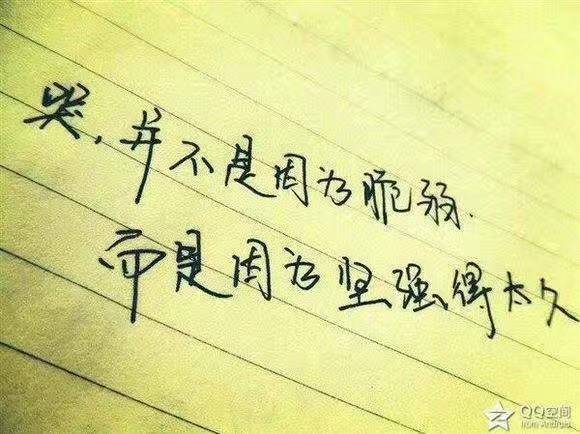 哭，并不是因为脆弱．
而是因为坚强得太久
QQ空间
from Android